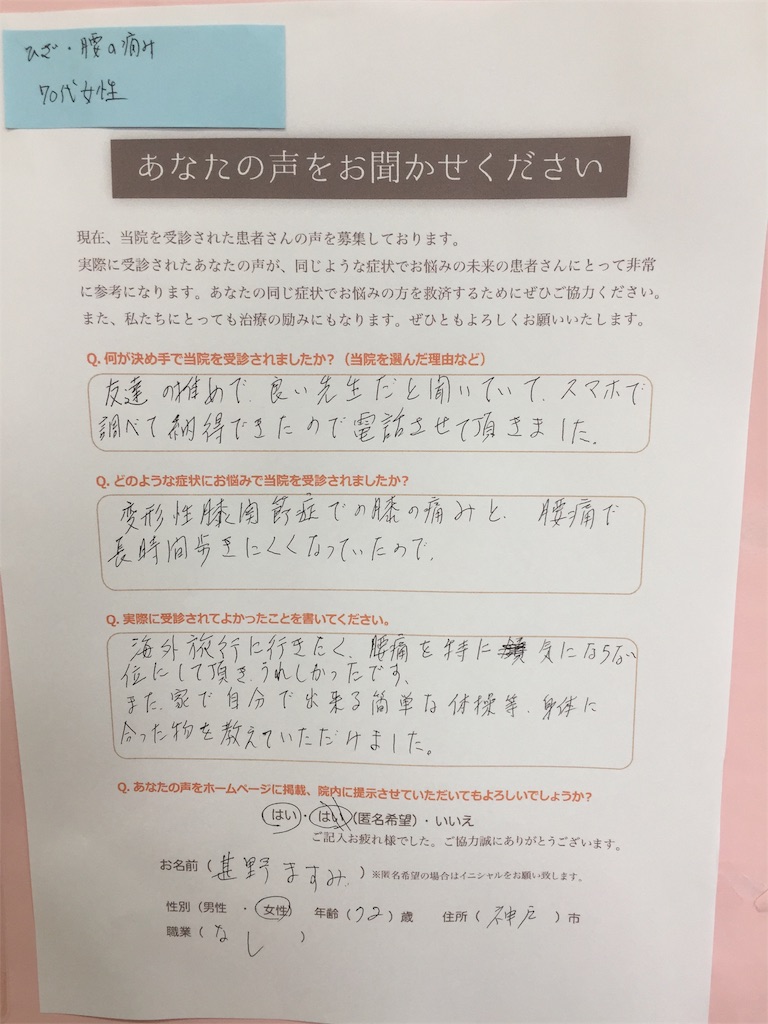 ひざ・腰の痛み
70代女性
あなたの声をお聞かせください
現在、当院を受診された患者さんの声を募集しております。
実際に受診されたあなたの声が、同じような症状でお悩みの未来の患者さんにとって非常
に参考になります。あなたの同じ症状でお悩みの方を救済するためにぜひご協力ください。
また、私たちにとっても治療の励みにもなります。ぜひともよろしくお願いいたします。
Q. 何が決め手で当院を受診されましたか？（当院を選んだ理由など）
友達の推めで、良い先生だと聞いていて、スマホで
調べて納得できたので電話させて頂きました。
Q. どのような症状にお悩みで当院を受診されましたか？
変形性膝関節症での膝の痛みと、腰痛で
長時間歩きにくくなっていたので、
Q. 実際に受診されてよかったことを書いてください。
海外旅行に行きたく、腰痛を特に気にならない
位にして頂き、うれしかったです、
また、家で自分で出来る簡単な体操等、身体に
合った物を教えていただけました。
Q. あなたの声をホームページに掲載、院内に提示させていただいてもよろしいでしょうか？
はい・はい（匿名希望）・いいえ
ご記入お疲れ様でした。ご協力誠にありがとうございます。
お名前（甚野 ますみ）※匿名希望の場合はイニシャルをお願い致します。
性別（男性 ・ 女性） 年齢（72）歳 住所（ 神戸 ）市
職業（ なし ）